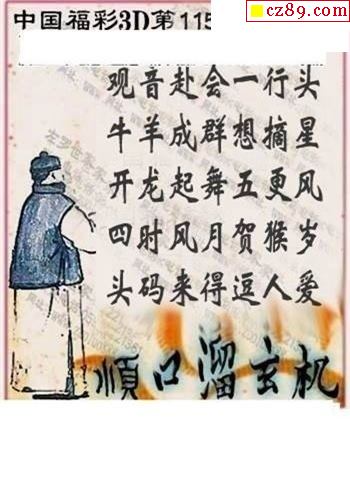 cz89.com
中国福彩3D第115
观音赴会一行头
牛羊成群想摘星
开龙起舞五更风
四时风月贺猴岁
头码来得逗人爱
順口溜玄机